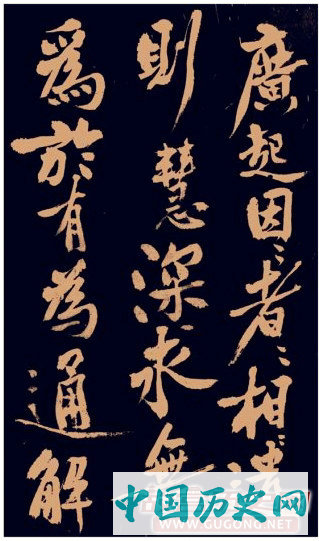 廣起因〻者〻相〻清
則慧深求無
爲於有為通解
中国历史网
WWW.GUGONG.NET